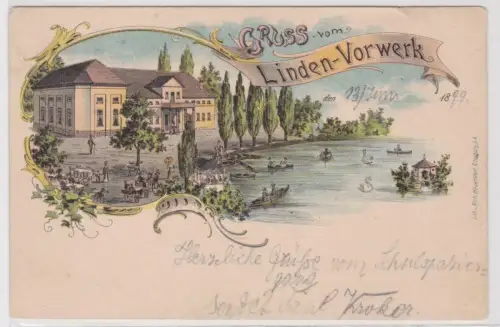 Gruss vom
Linden-Vorwerk
den 13/Juni 1899.
Herzliche Grüße vom Schulspazier-
gang
sendet Karl